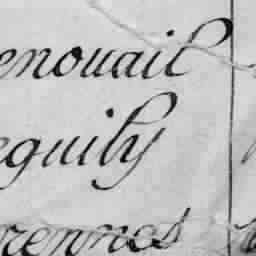 enouail
eguily
rennes